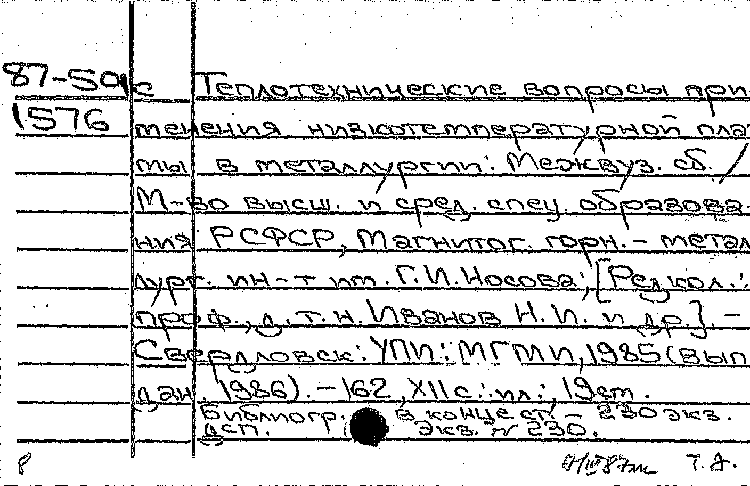 87-50 с Теплотехнические вопросы при-
1576 менения низкотемпературной плаз
мы в металлургии: Межвуз. сб. /
М-во высш. и сред. спец. образова-
ния РСФСР, Магнитог. горн.-метал
лург. ин-т им. Г.И. Носова; [Редкол.:
проф., д.т.н. Иванов Н.И. и др.]. -
Свердловск: УПИ: МГМИ, 1985 (вып.
дан. 1986). - 162, XII с.: ил.; 19 см.
Библиогр. в конце ст. - 230 экз.
ДСП. Экз. № 230.
8 Т. Д.